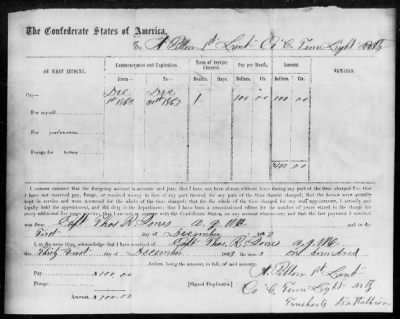 The Confederate States of America,
To A Pillow 1st Lieut Co C. Tenn Light Batty
ON WHAT ACCOUNT.
Commencement and Expiration.
Term of Service Charged.
Pay per Month.
Amount.
REMARKS.
From—
To—
Months.
Days.
Dollars.
Cts.
Dollars.
Cts.
Pay—
Dec 1st 1863
Dec 31st 1863
1
100 00
100 00
For myself
For private servant
Forage for horses
$100.00
I HEREBY CERTIFY that the foregoing account is accurate and just; that I have not been absent without leave during any part of the time charged for; that
I have not received pay, forage, or received money in lieu of any part thereof, for any part of the time therein charged; that the horses were actually
kept in service and were mustered for the whole of the time charged; that for the whole of the time charged for my staff appointment, I actually and
legally held the appointment, and did duty in the department; that I have been a commissioned officer for the number of years stated in the charge for
every additional five years' service; that I am not in arrears with the Confederate States, on any account whatsoever; and that the last payment I received
was from Capt Thos R.
First day of December
I, at the same time, acknowledge that I have received of Capt Thos R.
this Thirty First day of December 1863 one hundred
dollars, being the amount, in full, of said account.
Pay $100.00
Amount, $100.00
[Signed Duplicates.]
A. Pillow 1st Lieut
Co C. Tenn Light